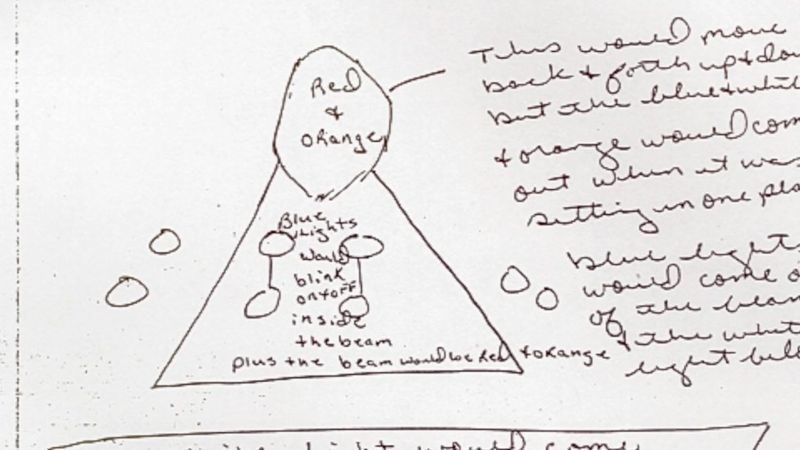 Red
+
orange
This would move
back + forth up + dow
but the blue + whit
+ orange would com
out when it was
sitting in one pla
Blue
lights
would
blink
on + off
inside
the beam
plus the beam would be Red + orange
blue light
would come o
of the beam
+ the whit
light bel
light would come